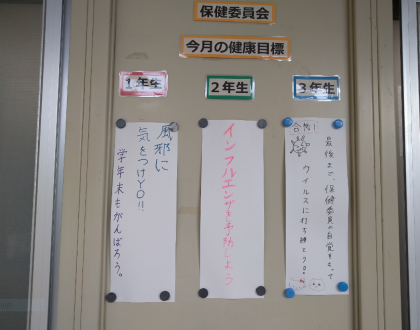 保健委員会
今月の健康目標
1年生
2年生
3年生
風邪に
気をつけYO!!
学年末もがんばろう。
インフルエンザを予防しよう
最後まで、保健委員の自覚をもって
ウイルスに打ち勝とう。
合格!